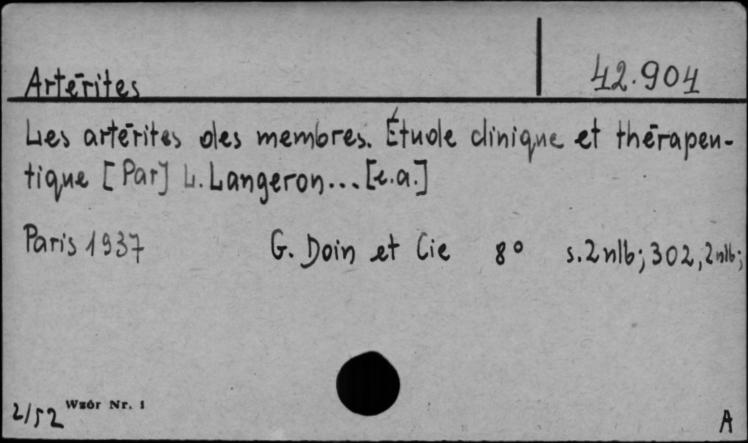 Artérites
42.904
Les artérites des membres. Étude clinique et thérapeu-
tique [Par] L. Langeron... [e.a.]
Paris 1937 G. Doin et Cie 8° s. 2 nlb; 302, 2 nlb;
2/52 Wzór Nr. 1
A